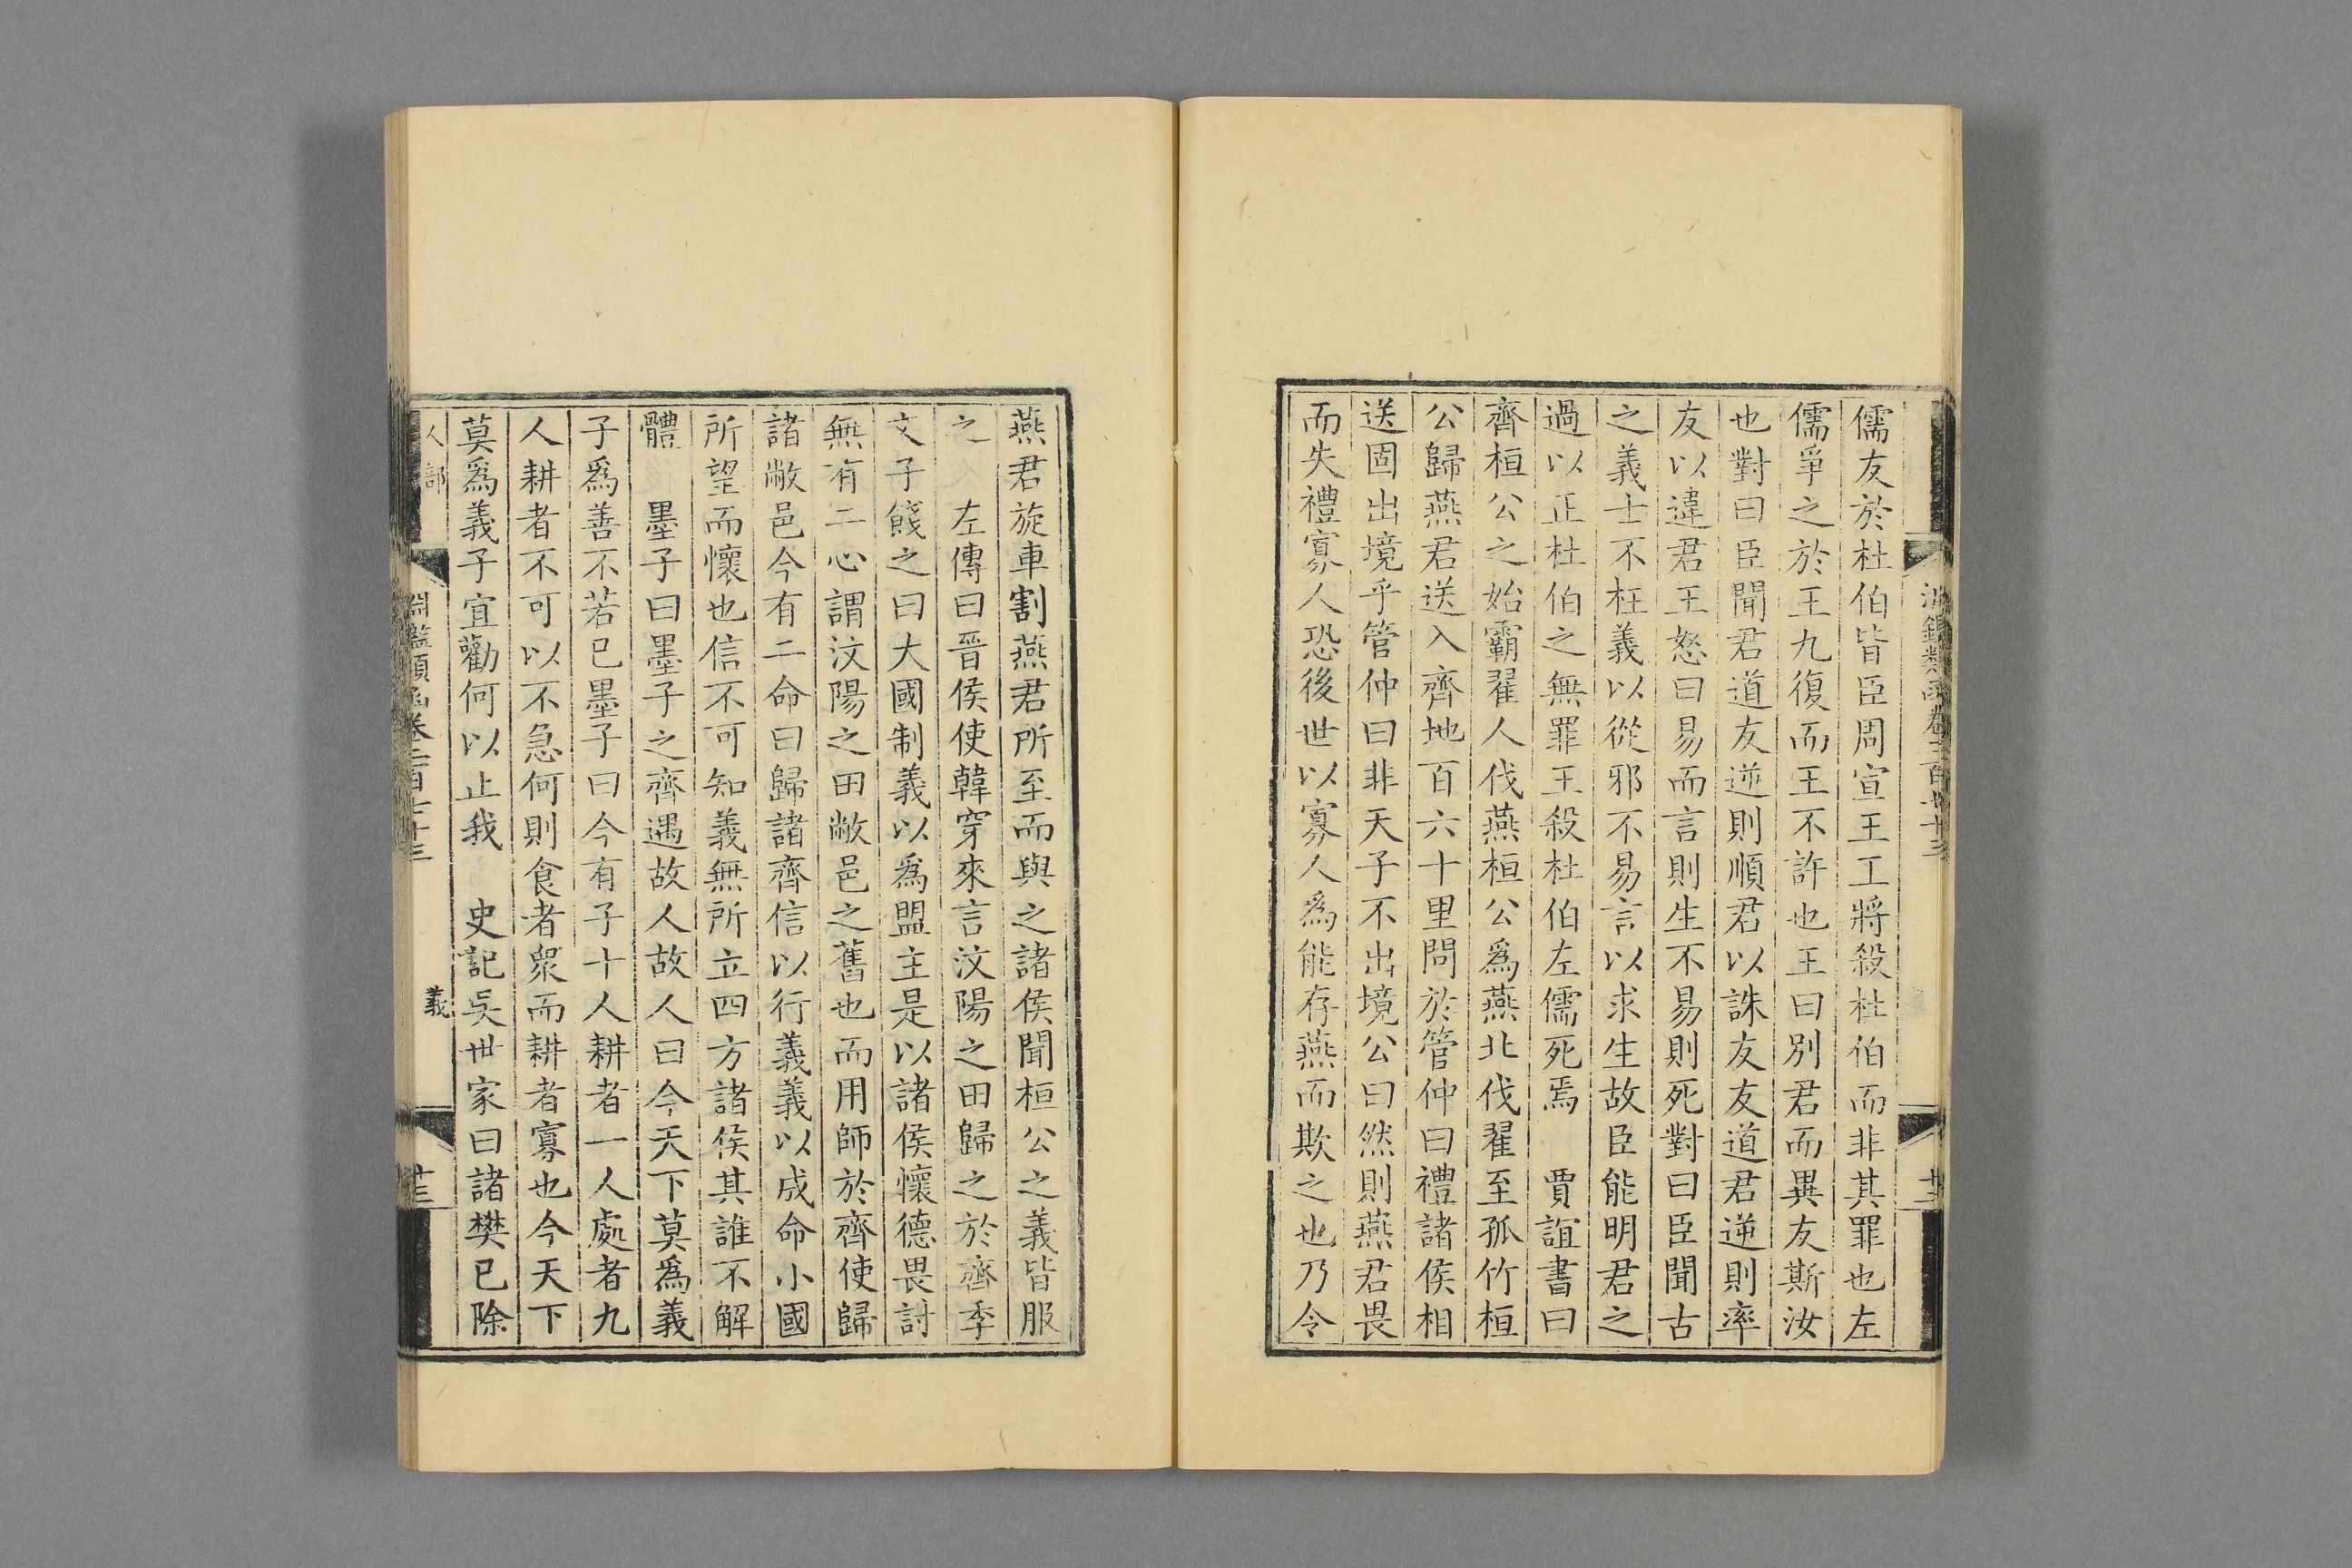 儒友於杜伯皆臣周宣王工將殺杜伯而非其罪也左
儒爭之於王九復而王不許也王曰別君而異友斯汝
也對曰臣聞君道友逆則順君以誅友友道君逆則率
友以違君王怒曰易而言則生不易則死對曰臣聞古
之義士不枉義以從邪不易言以求生故臣能明君之
過以正杜伯之無罪王殺杜伯左儒死焉　賈誼書曰
齊桓公之始霸翟人伐燕桓公爲燕北伐翟至孤竹桓
公歸燕君送入齊地百六十里問於管仲曰禮諸侯相
送固出境乎管仲曰非天子不出境公曰然則燕君畏
而失禮寡人恐後世以寡人爲能存燕而欺之也乃令
燕君旋車割燕君所至而與之諸侯聞桓公之義皆服
之　左傳曰晉侯使韓穿來言汶陽之田歸之於齊季
文子餞之曰大國制義以爲盟主是以諸侯懷德畏討
無有二心謂汶陽之田敝邑之舊也而用師於齊使歸
諸敝邑今有二命曰歸諸齊信以行義義以成命小國
所望而懷也信不可知義無所立四方諸侯其誰不解
體　墨子曰墨子之齊遇故人故人曰今天下莫爲義
子爲善不若已墨子曰今有子十人耕者一人處者九
人耕者不可以不急何則食者衆而耕者寡也今天下
莫爲義子宜勸何以止我　史記吳世家曰諸樊已除
人部　淵鑑類函卷二百七十三　義　廿三